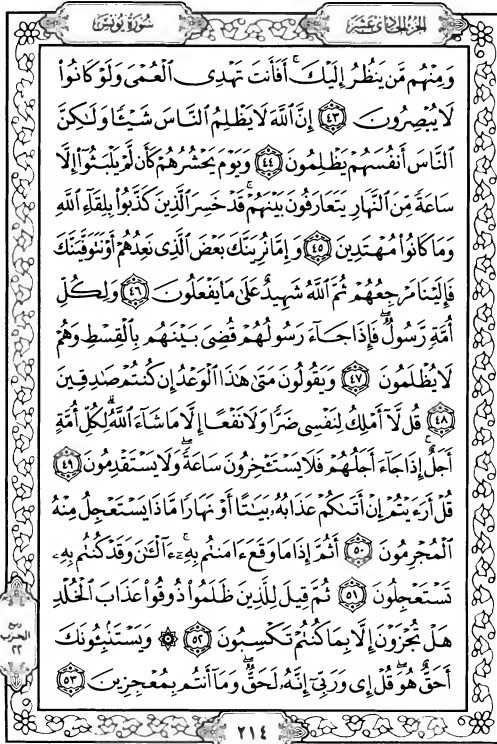 سورة يونس
الجزء الحادي عشر
وَمِنْهُم مَّن يَنظُرُ إِلَيْكَ ۚ أَفَأَنتَ تَهْدِى ٱلْعُمْىَ وَلَوْ كَانُوا۟
لَا يُبْصِرُونَ ﴿٤٣﴾ إِنَّ ٱللَّهَ لَا يَظْلِمُ ٱلنَّاسَ شَيْـًٔا وَلَـٰكِنَّ
ٱلنَّاسَ أَنفُسَهُمْ يَظْلِمُونَ ﴿٤٤﴾ وَيَوْمَ يَحْشُرُهُمْ كَأَن لَّمْ يَلْبَثُوٓا۟ إِلَّا
سَاعَةً مِّنَ ٱلنَّهَارِ يَتَعَارَفُونَ بَيْنَهُمْ ۚ قَدْ خَسِرَ ٱلَّذِينَ كَذَّبُوا۟ بِلِقَآءِ ٱللَّهِ
وَمَا كَانُوا۟ مُهْتَدِينَ ﴿٤٥﴾ وَإِمَّا نُرِيَنَّكَ بَعْضَ ٱلَّذِى نَعِدُهُمْ أَوْ نَتَوَفَّيَنَّكَ
فَإِلَيْنَا مَرْجِعُهُمْ ثُمَّ ٱللَّهُ شَهِيدٌ عَلَىٰ مَا يَفْعَلُونَ ﴿٤٦﴾ وَلِكُلِّ
أُمَّةٍ رَّسُولٌ ۖ فَإِذَا جَآءَ رَسُولُهُمْ قُضِىَ بَيْنَهُم بِٱلْقِسْطِ وَهُمْ
لَا يُظْلَمُونَ ﴿٤٧﴾ وَيَقُولُونَ مَتَىٰ هَـٰذَا ٱلْوَعْدُ إِن كُنتُمْ صَـٰدِقِينَ
﴿٤٨﴾ قُل لَّآ أَمْلِكُ لِنَفْسِى ضَرًّا وَلَا نَفْعًا إِلَّا مَا شَآءَ ٱللَّهُ ۗ لِكُلِّ أُمَّةٍ
أَجَلٌ ۚ إِذَا جَآءَ أَجَلُهُمْ فَلَا يَسْتَـْٔخِرُونَ سَاعَةً ۖ وَلَا يَسْتَقْدِمُونَ ﴿٤٩﴾
قُلْ أَرَءَيْتُمْ إِنْ أَتَىٰكُمْ عَذَابُهُۥ بَيَـٰتًا أَوْ نَهَارًا مَّاذَا يَسْتَعْجِلُ مِنْهُ
ٱلْمُجْرِمُونَ ﴿٥٠﴾ أَثُمَّ إِذَا مَا وَقَعَ ءَامَنتُم بِهِۦٓ ۚ ءَآلْـَٔـٰنَ وَقَدْ كُنتُم بِهِۦ
تَسْتَعْجِلُونَ ﴿٥١﴾ ثُمَّ قِيلَ لِلَّذِينَ ظَلَمُوا۟ ذُوقُوا۟ عَذَابَ ٱلْخُلْدِ
هَلْ تُجْزَوْنَ إِلَّا بِمَا كُنتُمْ تَكْسِبُونَ ﴿٥٢﴾ ۞ وَيَسْتَنۢبِـُٔونَكَ
أَحَقٌّ هُوَ ۖ قُلْ إِى وَرَبِّىٓ إِنَّهُۥ لَحَقٌّ ۖ وَمَآ أَنتُم بِمُعْجِزِينَ ﴿٥٣﴾
ربع
الحزب
٢٢
٢١٤